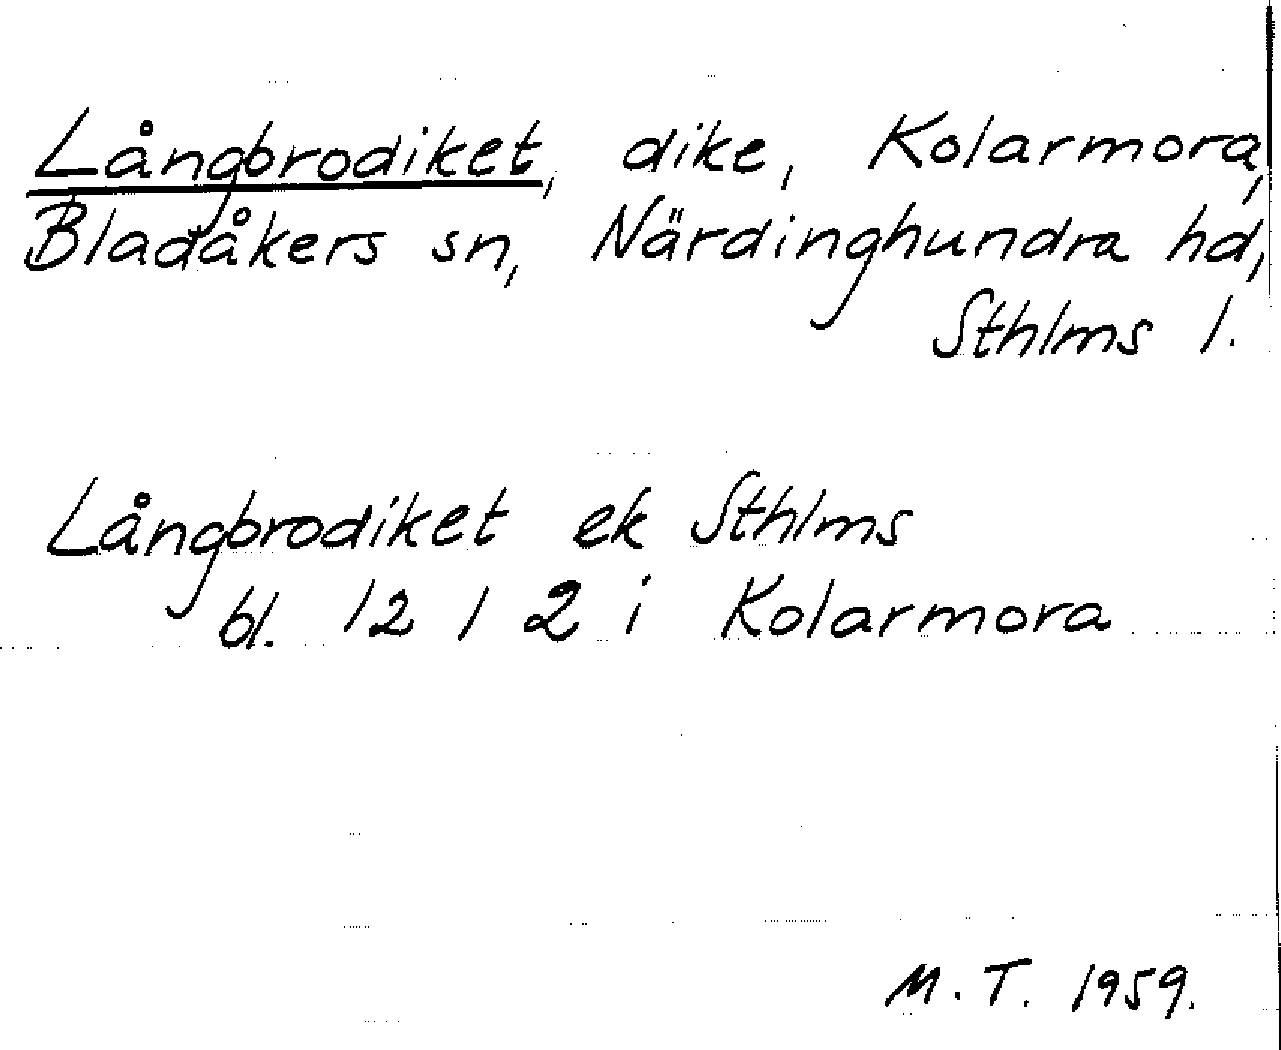 Långbrodiket, dike, Kolarmora,
Bladåkers sn, Närdinghundra hd,
Sthlms l.
Långbrodiket ek Sthlms
bl. 12 1 2 i Kolarmora
M. T. 1959.